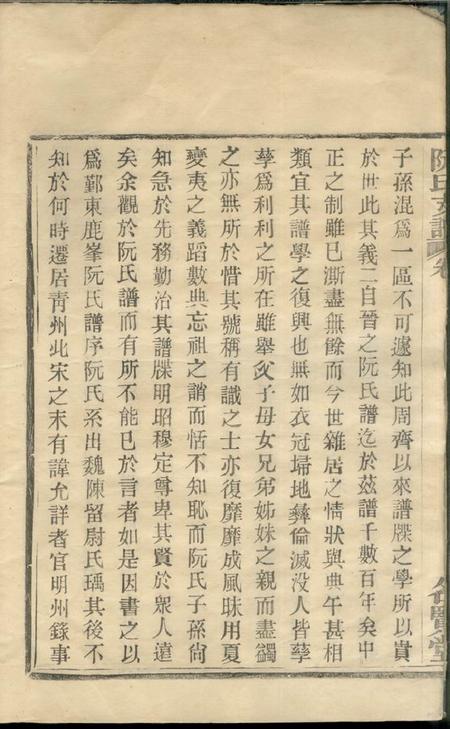 阮氏支譜卷
含賢堂
子孫混爲一區不可遽知此周齊以來譜牒之學所以貴
於世此其義二自晉之阮氏譜迄於茲譜千數百年矣中
正之制雖已澌盡無餘而今世雜居之情狀與典午甚相
類宜其譜學之復興也無如衣冠埽地彝倫滅没人皆孳
孳爲利利之所在雖舉父子母女兄弟姊妹之親而盡蠲
之亦無所於惜其號稱有識之士亦復靡靡成風昧用夏
變夷之義蹈數典忘祖之誚而恬不知恥而阮氏子孫尙
知急於先務勤治其譜牒明昭穆定尊卑其賢於衆人遠
矣余觀於阮氏譜而有所不能已於言者如是因書之以
爲鄞東鹿峯阮氏譜序阮氏系出魏陳留尉氏瑀其後不
知於何時遷居青州北宋之末有諱允詳者官明州錄事